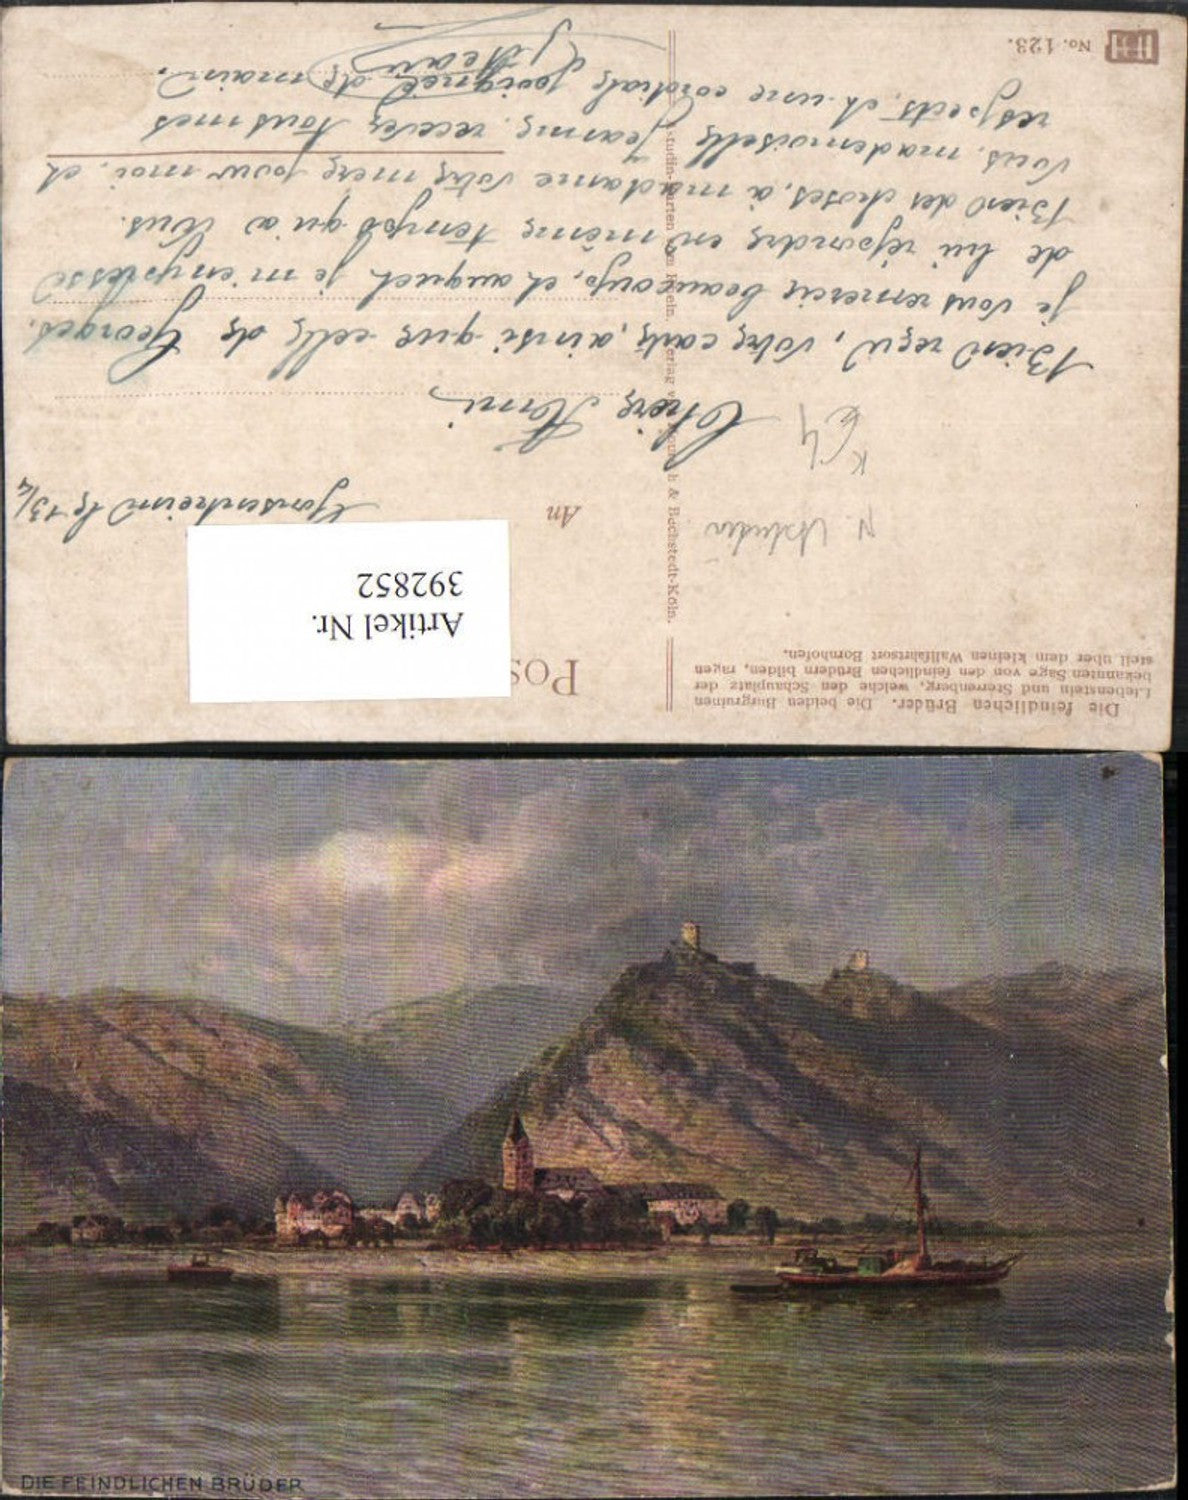 Die feindlichen Brüder. Die beiden Burgruinen
Liebenstein und Sterrenberg, welche den Schauplatz der
bekannten Sage von den feindlichen Brüdern bilden, ragen
steil über dem kleinen Wallfahrtsort Bornhofen.
Pos
Artikel Nr.
392852
An
le 13/4
K 64
Chère Amie
Bien reçu, votre carte, ainsi que celle de Georges.
je vous remercie beaucoup, et auquel je m'empresse
de lui répondre en même temps qu'a vous.
Bien des choses, à madame votre mère pour moi, et
vous, mademoiselle Jeanne, recevez tous mes
respects, et une cordiale poignée de main.
No. 123.
& Bechstedt-Köln.
DIE FEINDLICHEN BRÜDER